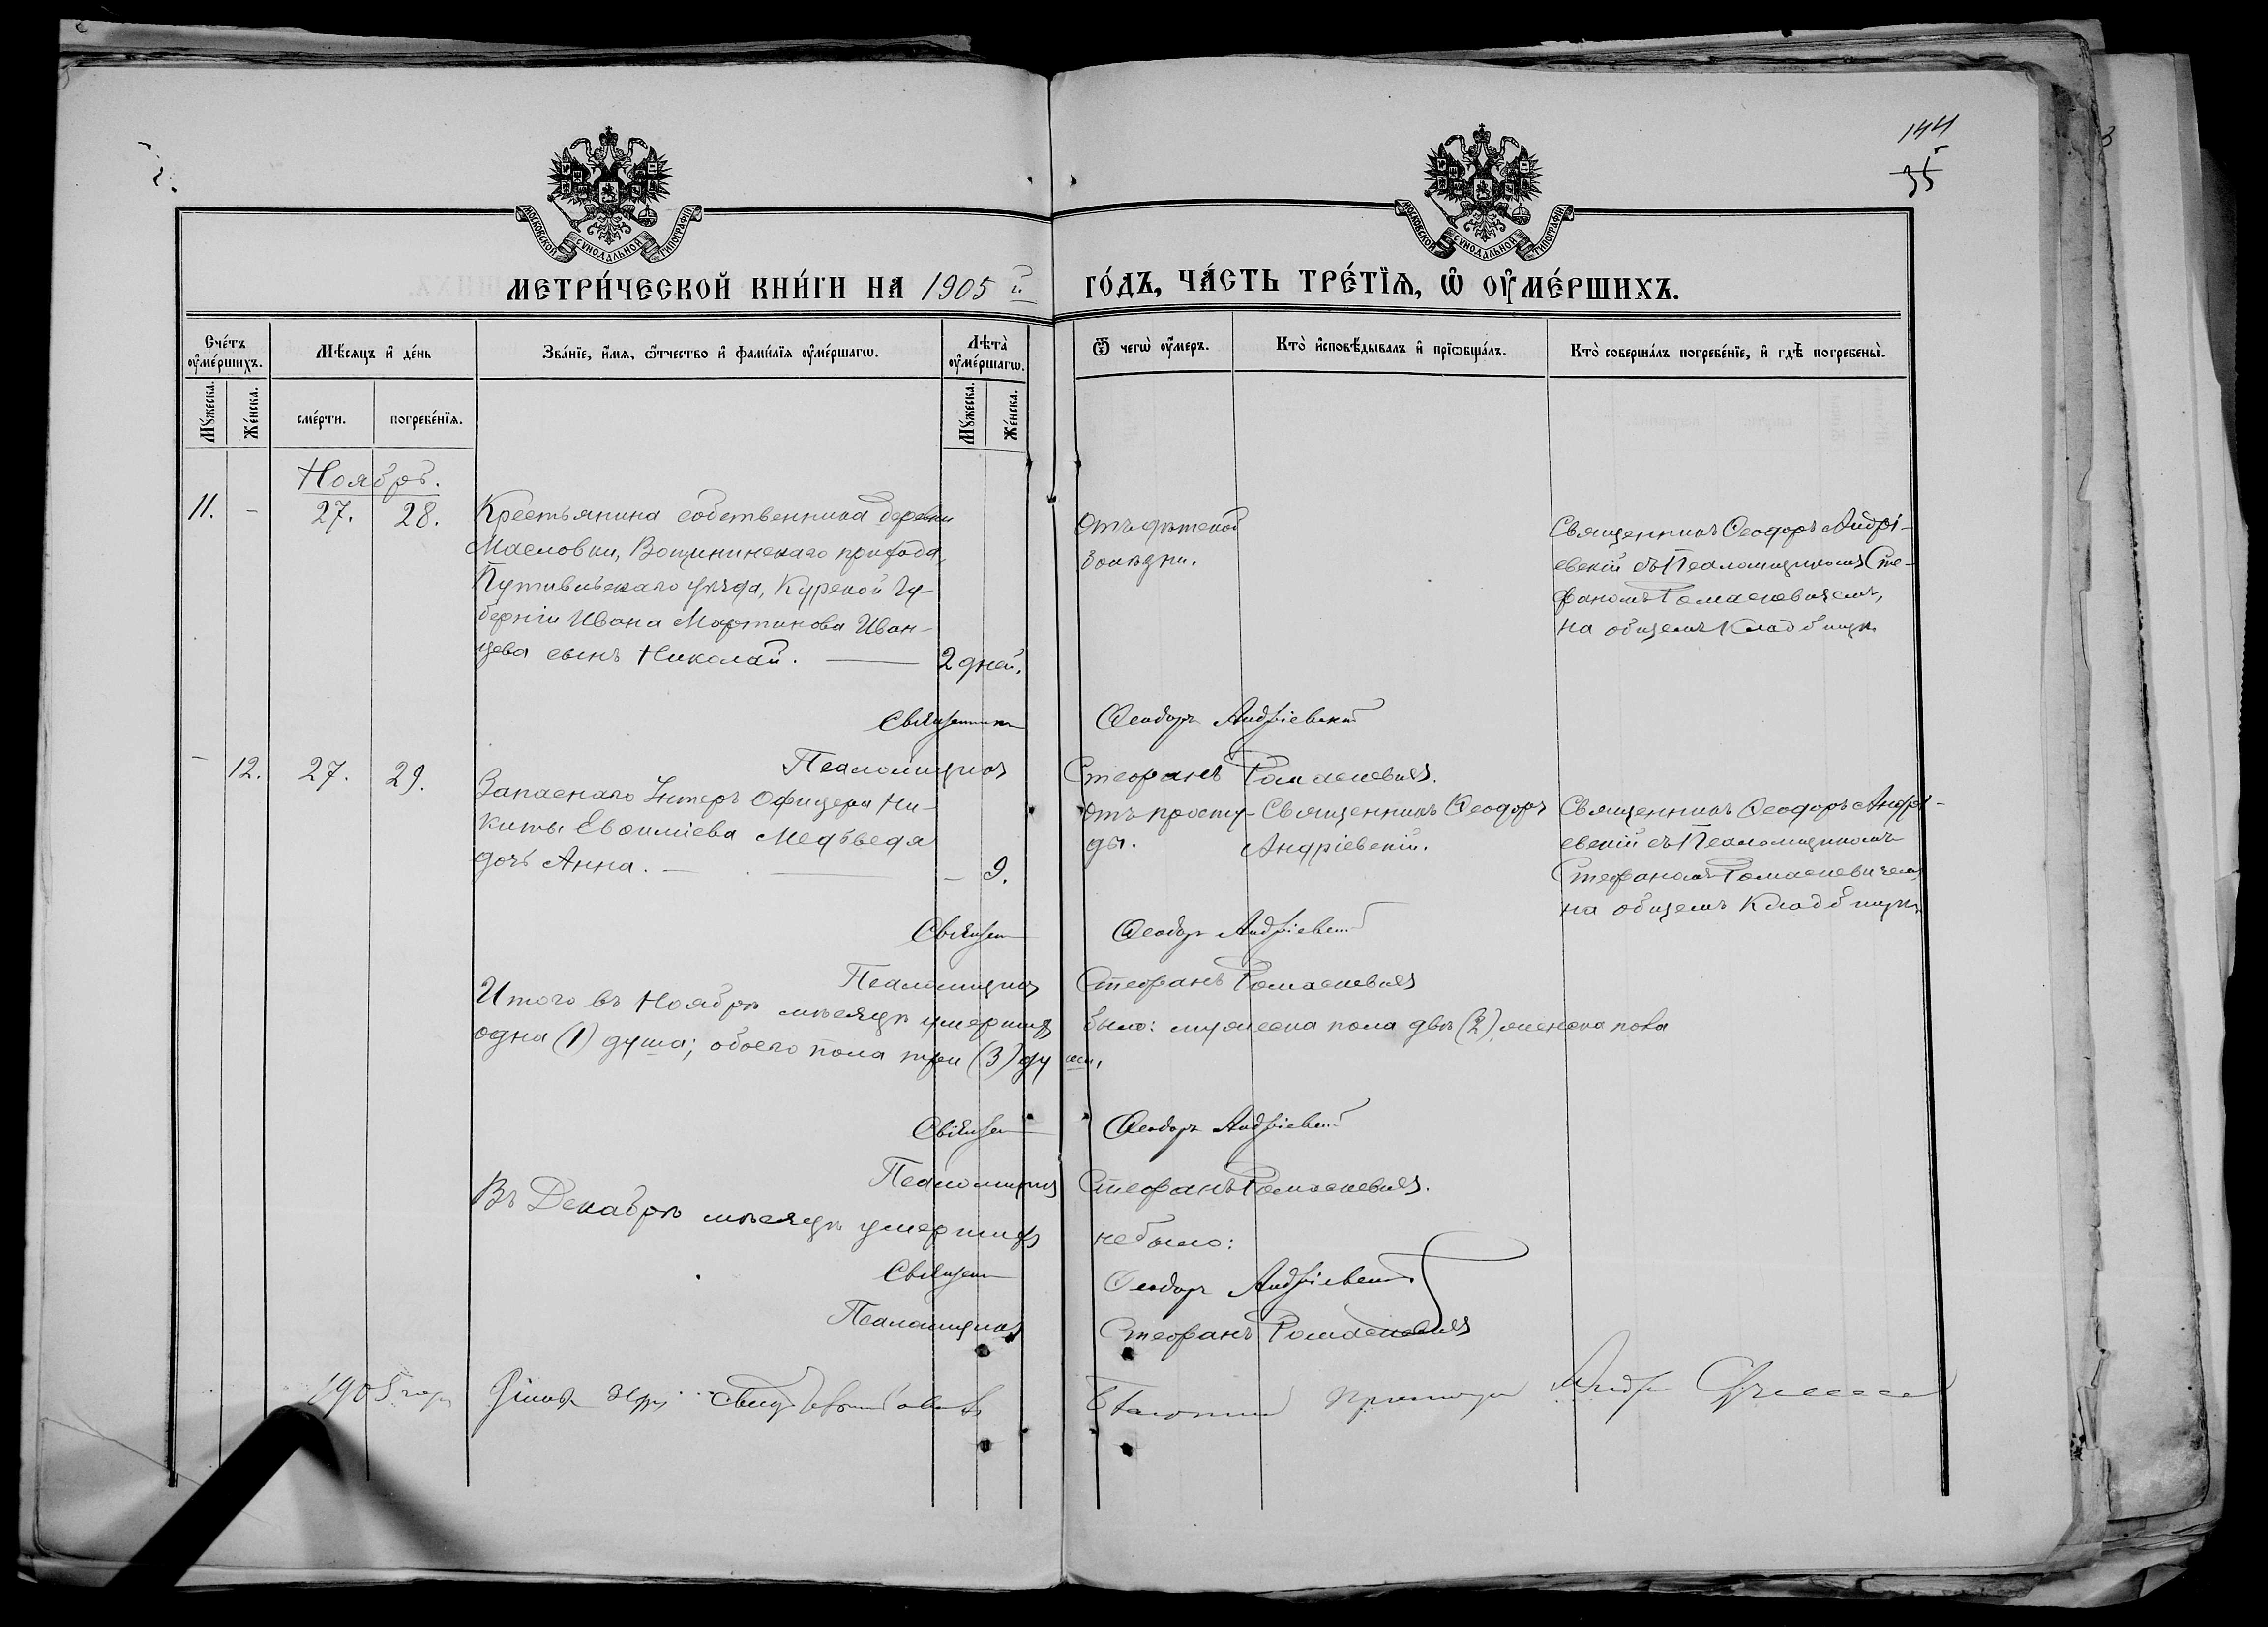 144
35
МОСКОВСКОЙ СѴНОДАЛЬНОЙ ТИПОГРАФІИ
МОСКОВСКОЙ СѴНОДАЛЬНОЙ ТИПОГРАФІИ
МЕТРИ́ЧЕСКОЙ КНИ́ГИ НА 1905 й
ГО́ДЪ, ЧА́СТЬ ТРЕ́ТЇѦ, Ѡ҆ ОУ҆МЕ́РШИХЪ.
Сче́тъ оу҆ме́ршихъ.
Мѣ́сѧцъ и҆ де́нь
Зва́нїе, и҆́мѧ, ѻ҆́тчество и҆ фами́лїѧ оу҆ме́ршагѡ.
Лѣ́та оу҆ме́ршагѡ.
Ѿ чегѡ̀ оу҆́меръ.
Кто̀ и҆сповѣ́дывалъ и҆ прїѡбща́лъ.
Кто̀ соверша́лъ погребе́нїе, и҆ гдѣ̀ погребены̀.
Мꙋ́жеска.
Же́нска.
сме́рти.
погребе́нїѧ.
Мꙋ́жеска.
Же́нска.
Ноябрь.
11. - 27. 28.
Крестьянина собственника деревни
Масловки, Вощининскаго прихода,
Путивльскаго уѣзда, Курской Гу-
берніи Ивана Мартинова Иван-
цева сынъ Николай. — 2 дней.
Отъ дѣтской
болѣзни.
Священникъ Ѳеодоръ Андрі-
евскій съ Псаломщикомъ Сте-
фаномъ Ромаскевичемъ,
на общемъ Кладбищѣ
Священникъ Ѳеодоръ Андріевскій
Псаломщикъ Стефанъ Ромаскевичъ.
- 12. 27. 29.
Запаснаго Унтеръ Офицера Ни-
киты Евѳиміева Медвѣдя
дочь Анна. — — 9.
Отъ просту-
ды.
Священникъ Ѳеодоръ
Андріевскій.
Священникъ Ѳеодоръ Андрі-
евскій съ Псаломщикомъ
Стефаномъ Ромаскевичемъ
на общемъ Кладбищѣ
Священ Ѳеодоръ Андріевскій
Псаломщикъ Стефанъ Ромаскевичъ
Итого въ Ноябрѣ мѣсяцѣ умершихъ было: мужеска пола двѣ (2), женска пола
одна (1) душа; обоего пола три (3) души.
Священ Ѳеодоръ Андріевскій
Псаломщикъ Стефанъ Ромаскевичъ.
Въ Декабрѣ мѣсяцѣ умершихъ не было:
Священ Ѳеодоръ Андріевскій
Псаломщикъ Стефанъ Ромаскевичъ
1905 года